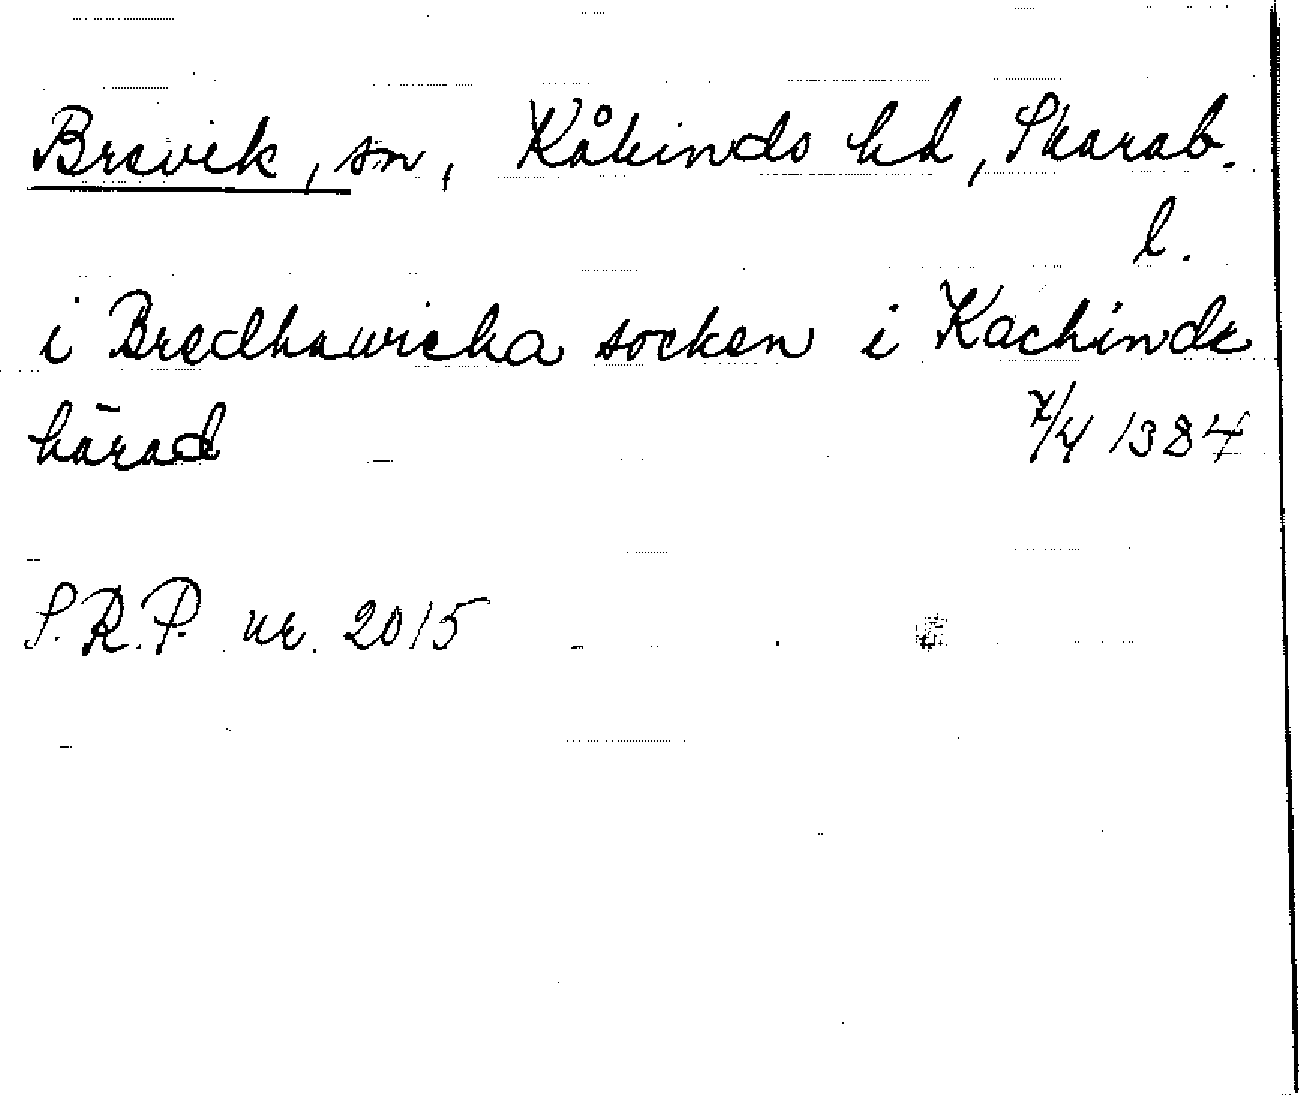 Brevik, sn, Kåkinds hd, Skarab.
l.
i Bredhawicka socken i Kachinde
härad 7/4 1384
S.R.P. nr. 2015